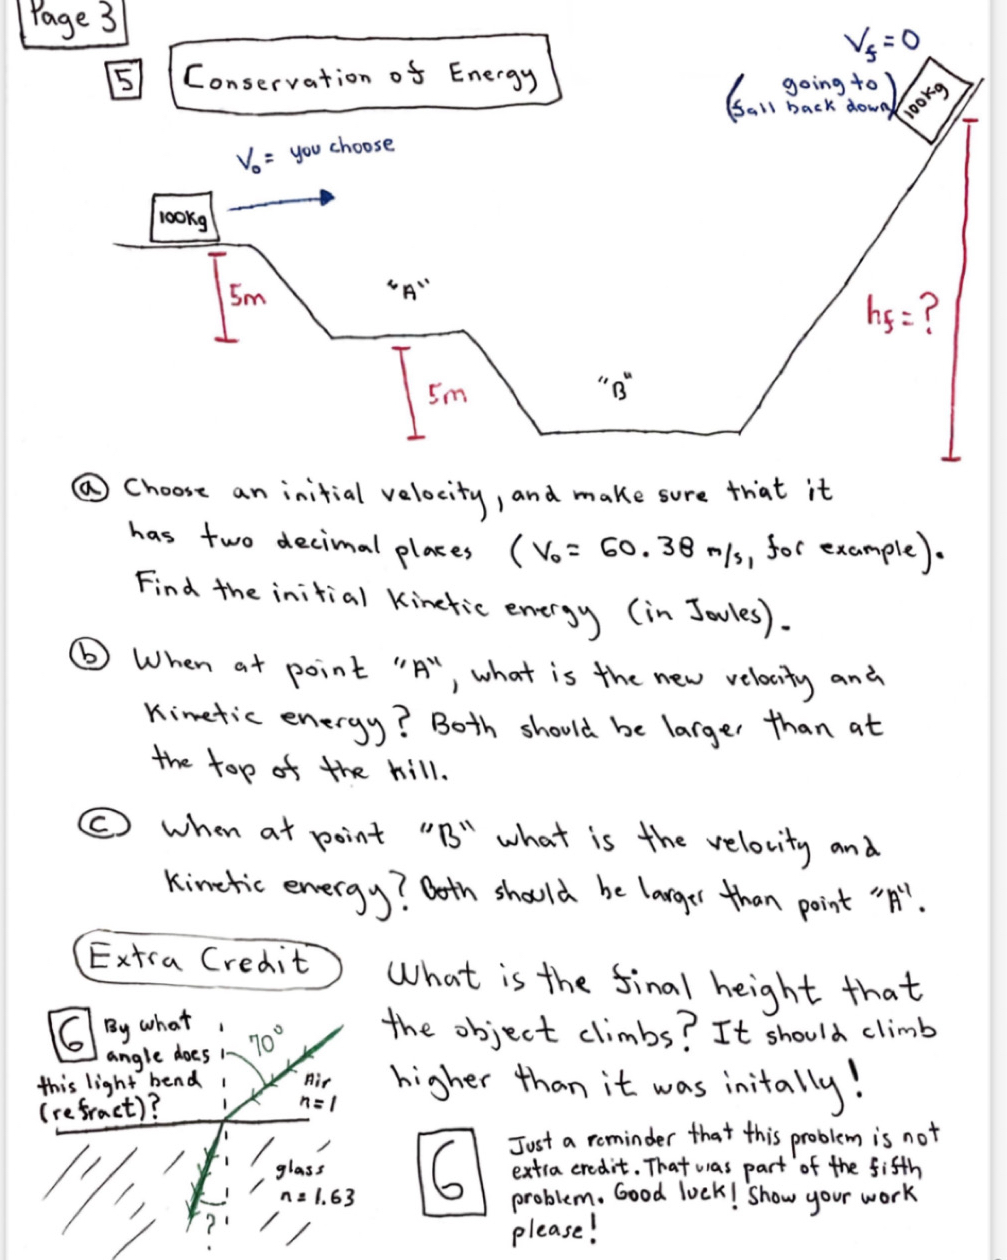 Page 3
5 Conservation of Energy
Vf = 0
(going to
fall back down)
100Kg
V₀ = you choose
100Kg
5m
"A"
hf = ?
5m
"B"
a Choose an initial velocity, and make sure that it
has two decimal places (V₀ = 60.38 m/s, for example).
Find the initial Kinetic energy (in Joules).
b When at point "A", what is the new velocity and
Kinetic energy? Both should be larger than at
the top of the hill.
c When at point "B" what is the velocity and
Kinetic energy? Both should be larger than point "A".
What is the final height that
the object climbs? It should climb
higher than it was initally!
Extra Credit
6 By what
angle does
this light bend
(refract)?
70°
Air
n=1
glass
n=1.63
?
6
Just a reminder that this problem is not
extra credit. That was part of the fifth
problem. Good luck! Show your work
please!